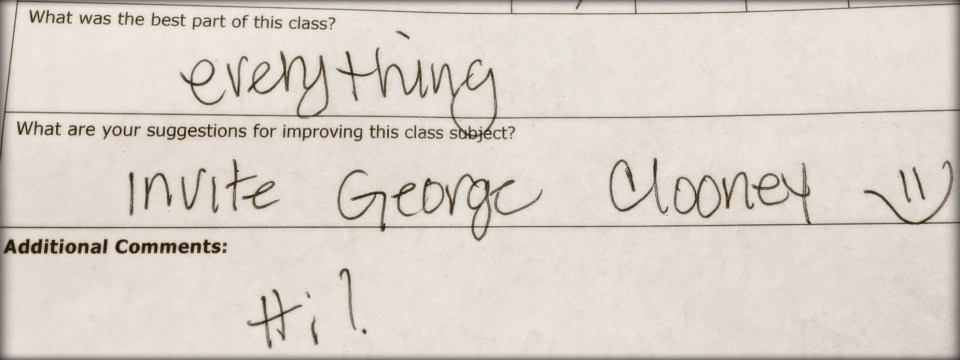 What was the best part of this class?
everything
What are your suggestions for improving this class subject?
Invite George Clooney =)
Additional Comments:
Hi!